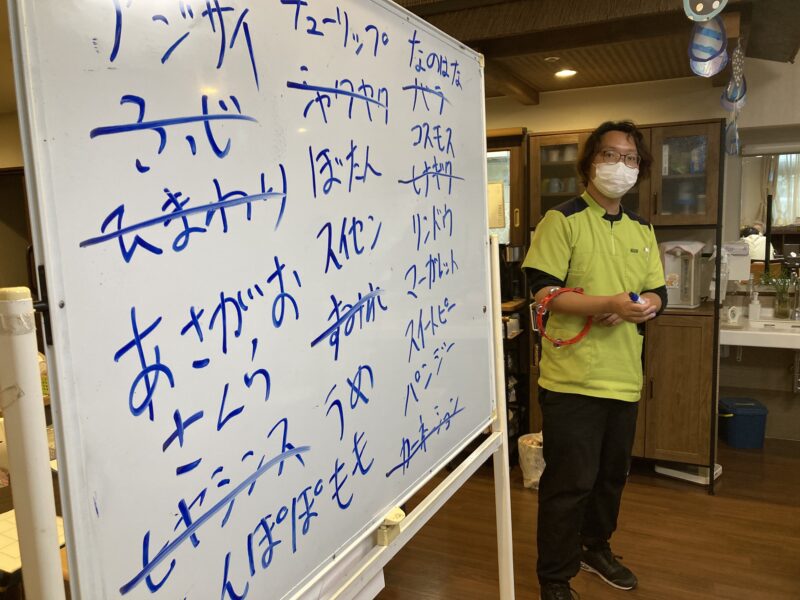 アジサイ
ふじ
ひまわり
あさがお
さくら
ヒヤシンス
んぽぽ
チューリップ
シャクヤク
ぼたん
スイセン
すみれ
うめ
もも
なのはな
バラ
コスモス
ヒナギク
リンドウ
マーガレット
スイートピー
パンジー
カーネーション